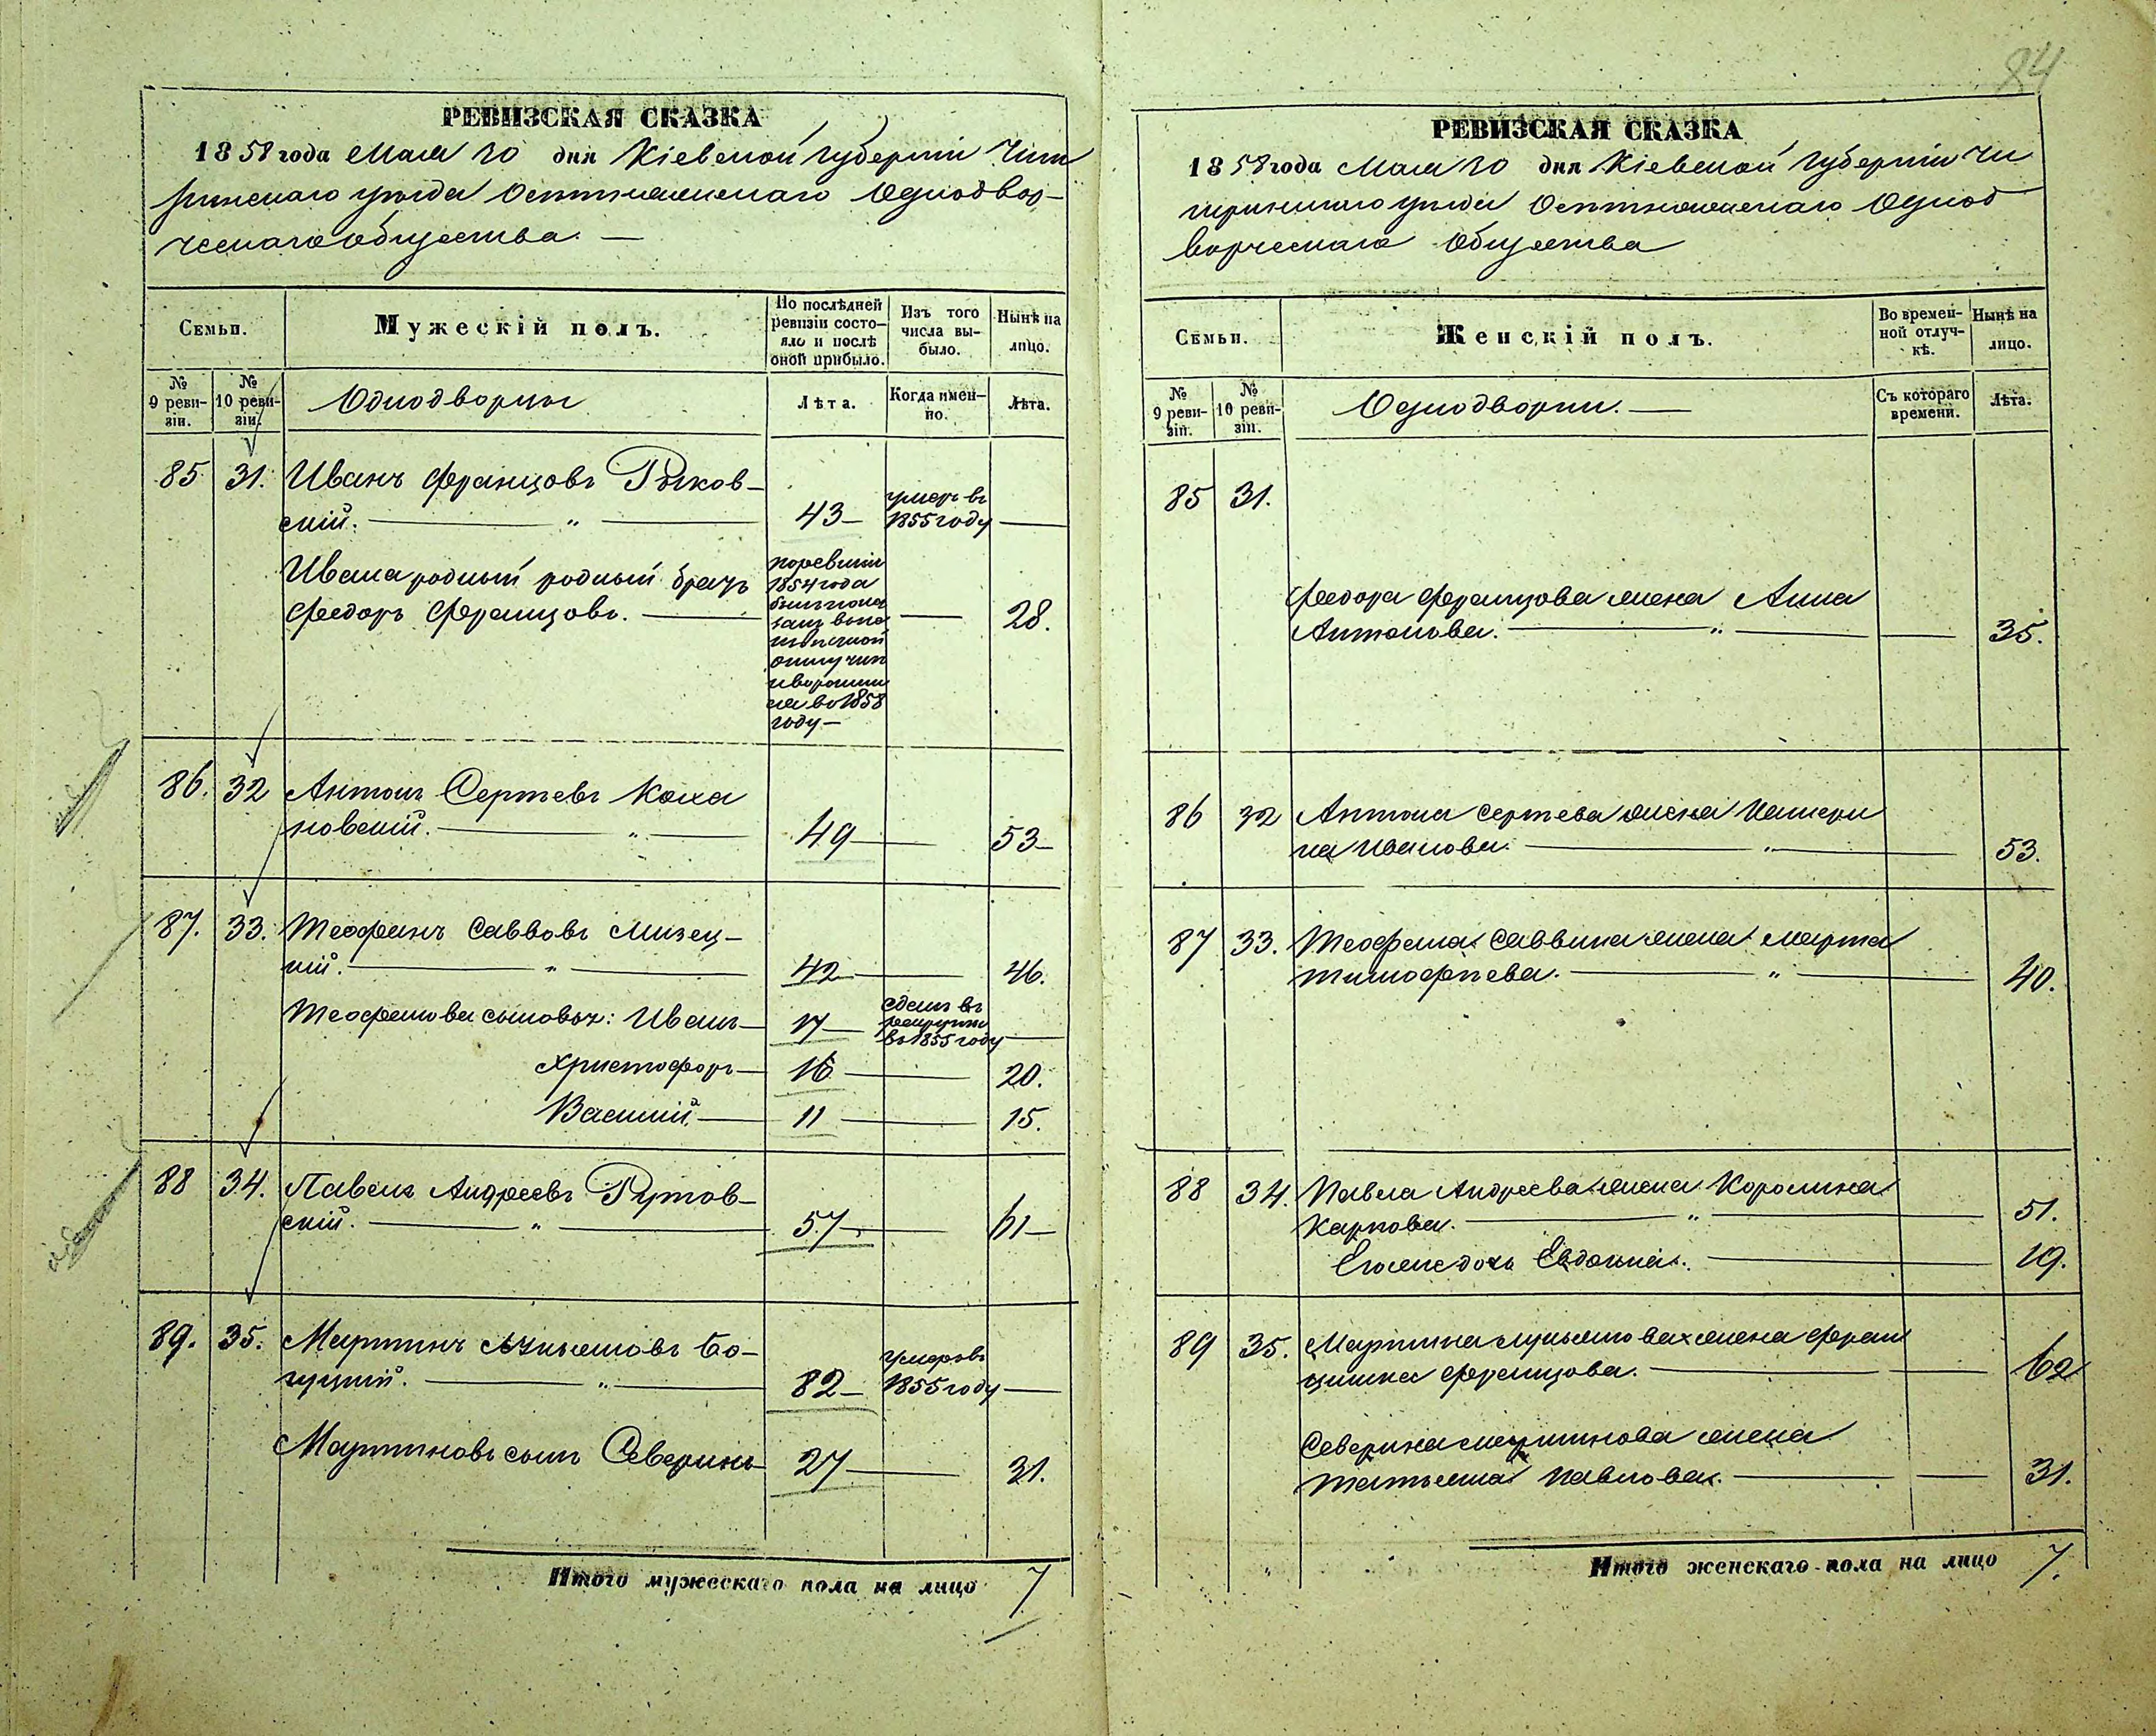 84
РЕВИЗСКАЯ СКАЗКА
1858 года Мая 20 дня Кіевской Губерніи Чиги
ринскаго уѣзда Однодвор-
ческаго общества. —
Семьи.
Мужескій полъ.
По послѣдней ревизіи состо-
яло и послѣ оной прибыло.
Изъ того числа вы-
было.
Нынѣ на лицо.
№ 9 реви-
зіи.
№ 10 реви-
зіи.
Однодворцы
Лѣта.
Когда имен-
но.
Лѣта.
85. 31. Иванъ Францовъ Рыков-
скій. — " — 43 — умеръ въ 1855 году —
Ивана родный родный братъ
Федоръ Францовъ. — по ревизіи 1854 года былъ показанъ въ отлучкѣ во 1858 году — — 28.
86. 32 Антонъ Сергѣевъ Коха
новскій. — " — 49 — 53 —
87. 33. Теофанъ Саввовъ Мизец-
кій. — " — 42 — 46.
Теофанова сыновья: Иванъ — 17 — сданъ въ рекруты въ 1855 году —
Христофоръ — 16 — 20.
Василій — 11 — 15.
88 34. Павелъ Андреевъ Рутов-
скій. — " — 57 — 61 —
89. 35. Мартинъ Бо-
гуцкій. — " — 82 — умеръ въ 1855 году —
Мартиновъ сынъ Северинъ 27 — 31.
Итого мужескаго пола на лицо 7
РЕВИЗСКАЯ СКАЗКА
1858 года Мая 20 дня Кіевской Губерніи Чи
гиринскаго уѣзда Однод
ворческаго Общества
Семьи.
Женскій полъ.
Во времен-
ной отлуч-
кѣ.
Нынѣ на лицо.
№ 9 реви-
зіи.
№ 10 реви-
зіи.
Однодворки. —
Съ котораго времени.
Лѣта.
85 31.
Федора Францова жена Анна
Антонова. — " — — 35.
86 32 Антона Сергѣева жена Катери
на Иванова. — " — 53.
87 33. Теофана Саввина жена Марта
Тимофѣева. — " — 40.
88 34. Павла Андреева жена Каролина
Карпова. — " — 51.
Его же дочь Евдокія. — 19.
89 35. Мартина жена Фран
цишка Францова. — — 62
Северина Мартинова жена
Татьяна Павлова. — — 31.
Итого женскаго пола на лицо 7.